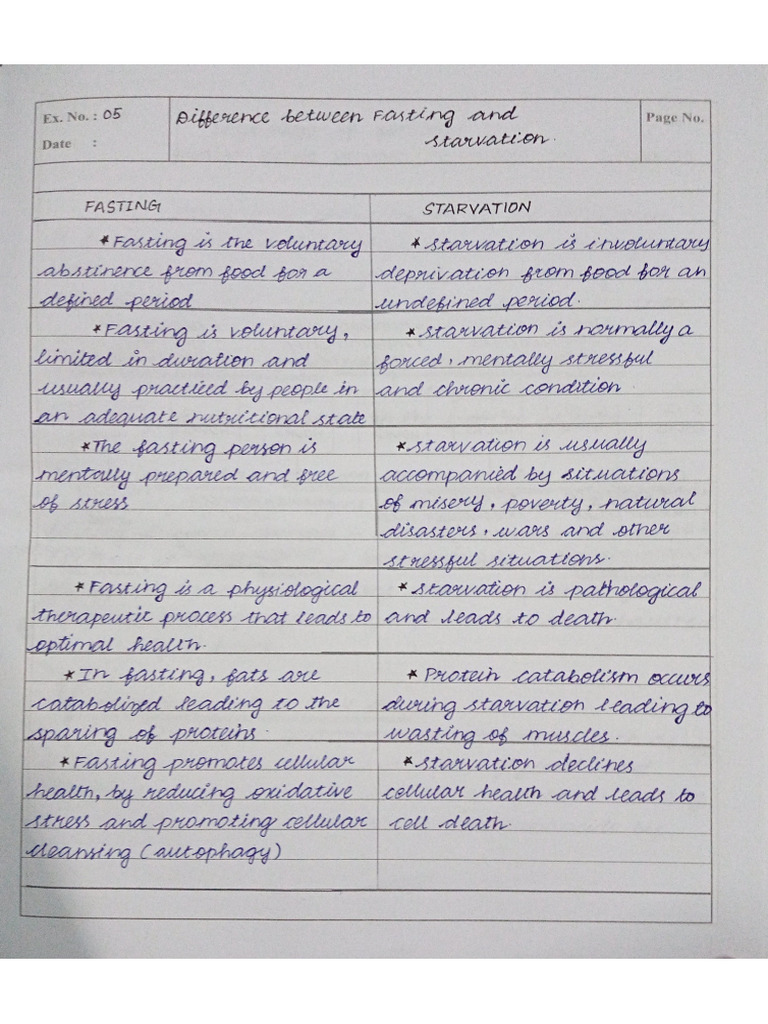 Ex. No. : 05
Difference between Fasting and
starvation.
Page No.
Date :
FASTING
* Fasting is the voluntary
abstinence from food for a
defined period
* Fasting is voluntary,
limited in duration and
usually practiced by people in
an adequate nutritional state
* The fasting person is
mentally prepared and free
of stress
* Fasting is a physiological
therapeutic process that leads to
optimal health.
* In fasting, fats are
catabolized leading to the
sparing of proteins.
* Fasting promotes cellular
health, by reducing oxidative
stress and promoting cellular
cleansing (autophagy)
STARVATION
* starvation is involuntary
deprivation from food for an
undefined period.
* starvation is normally a
forced, mentally stressful
and chronic condition.
* starvation is usually
accompanied by situations
of misery, poverty, natural
disasters, wars and other
stressful situations.
* starvation is pathological
and leads to death.
* Protein catabolism occurs
during starvation leading to
wasting of muscles.
* starvation declines
cellular health and leads to
cell death.